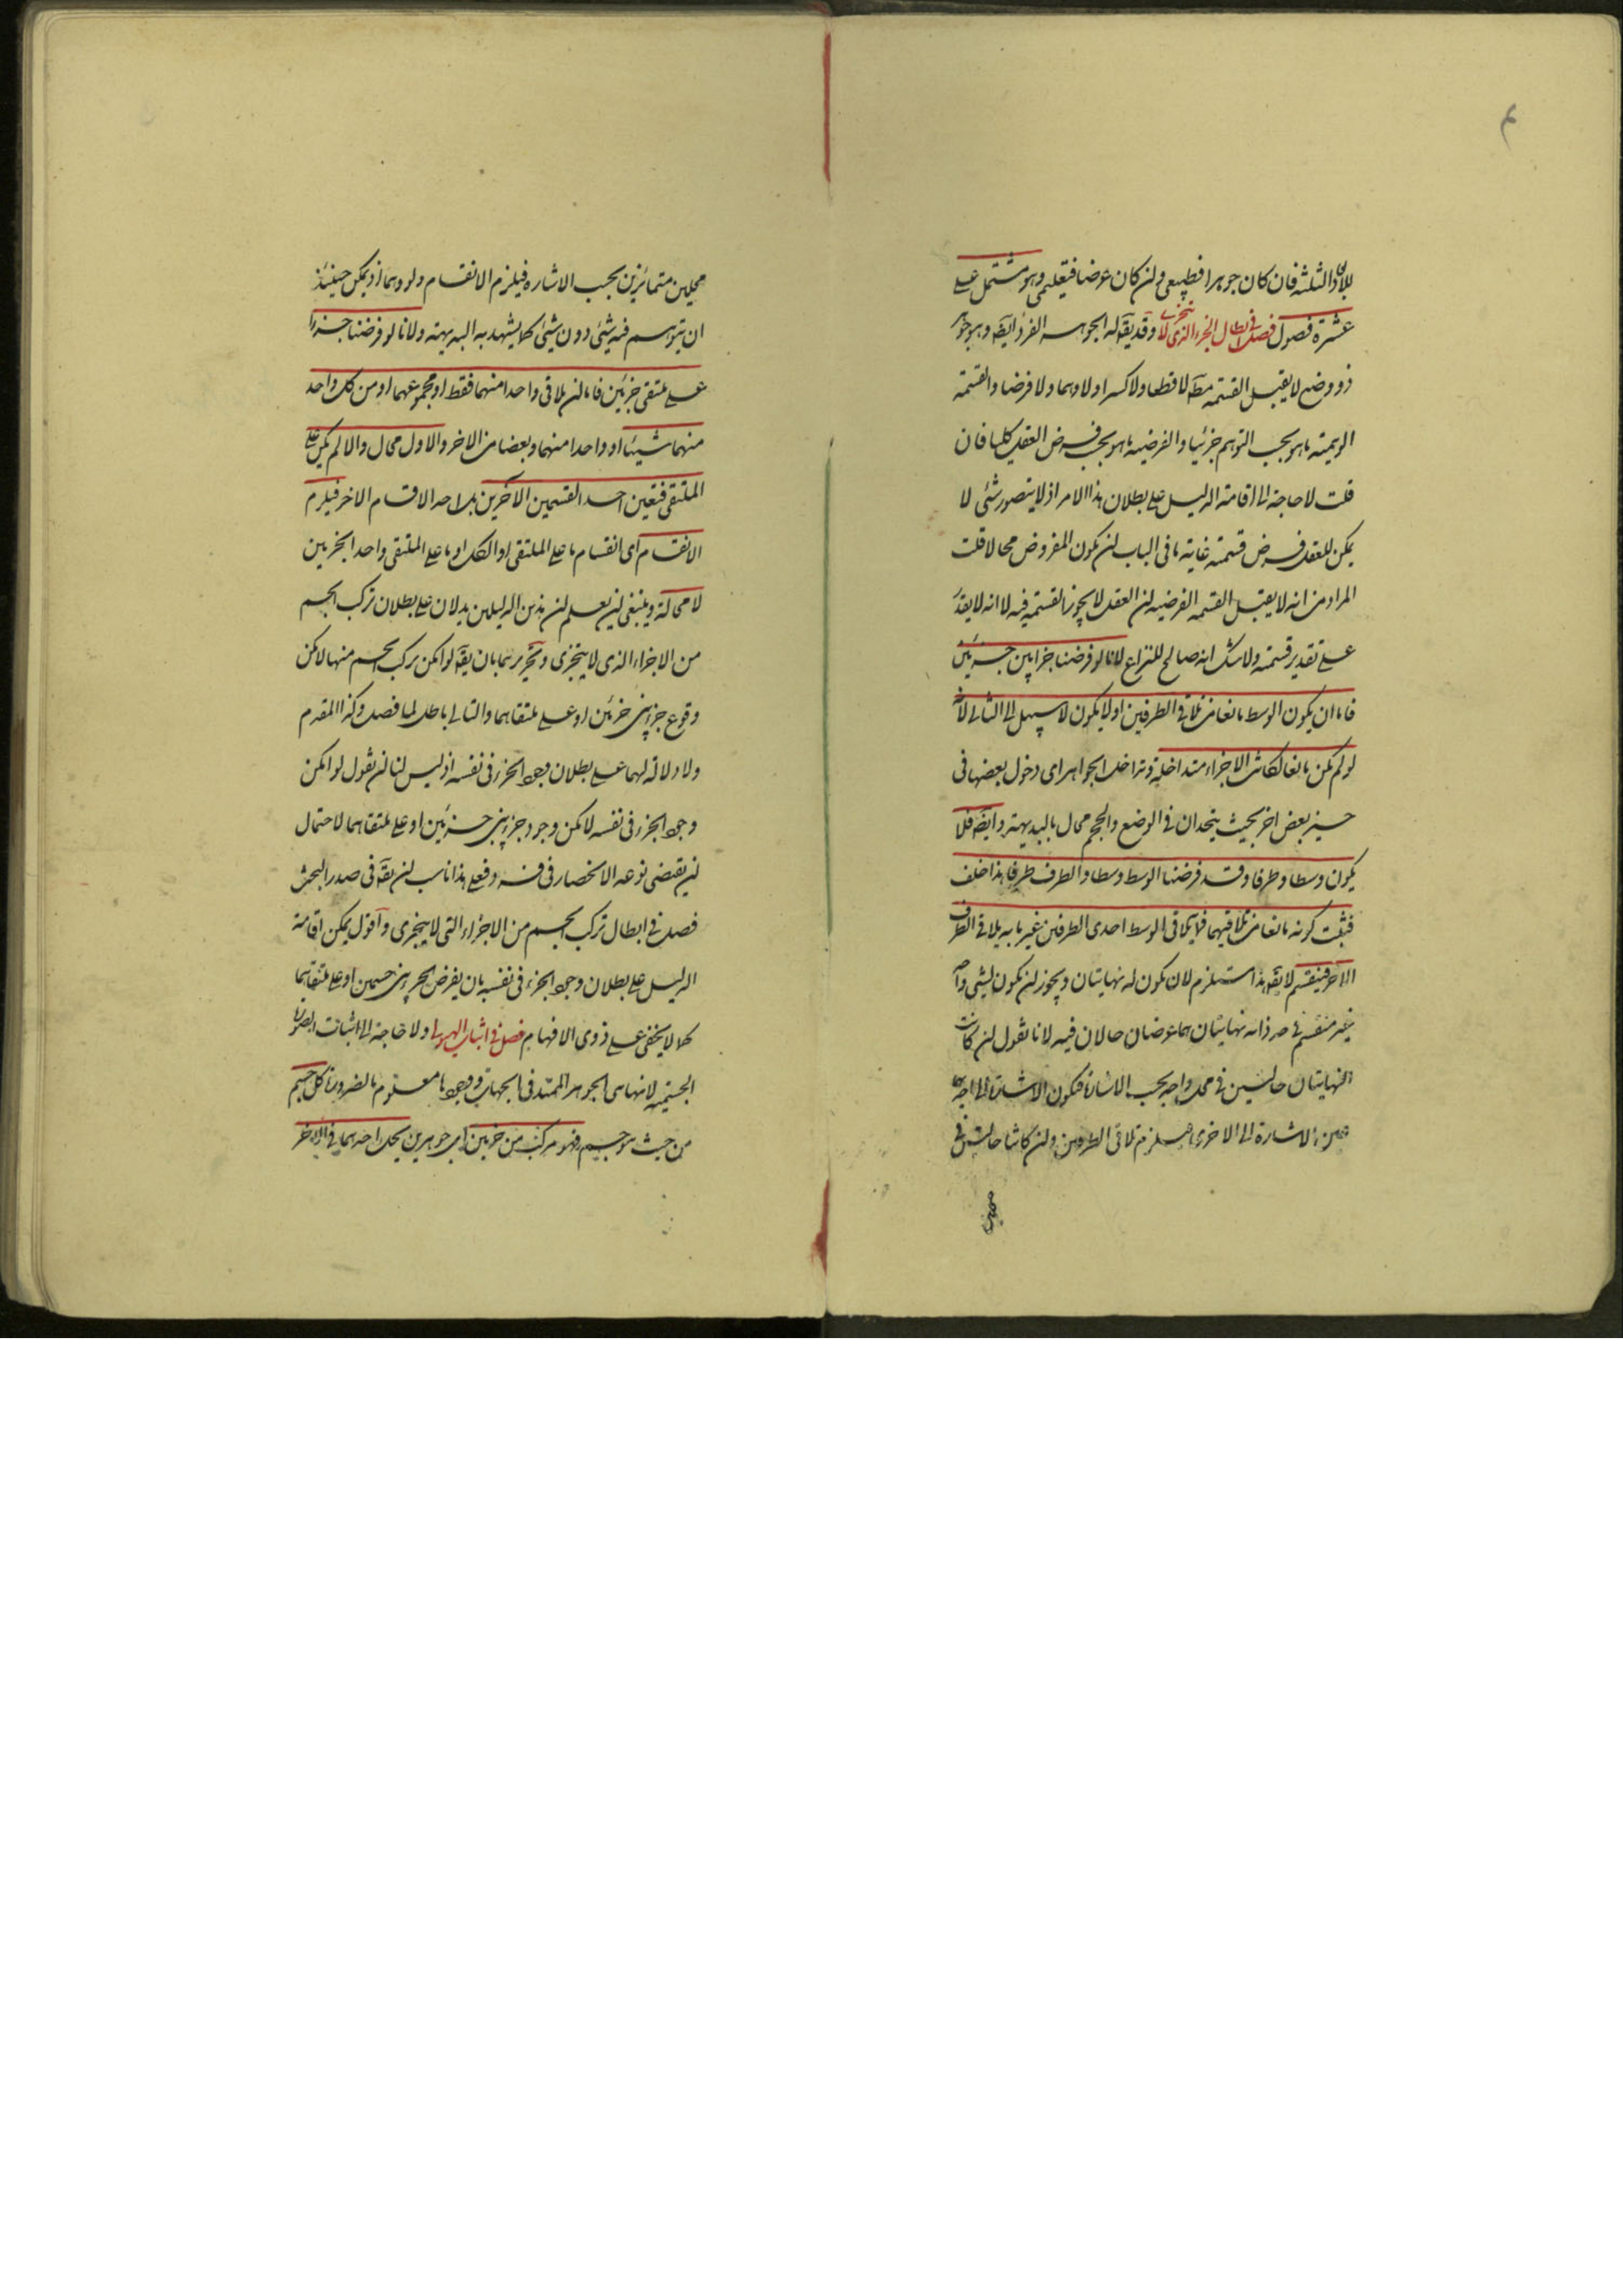 للابعاد الثلثة فان كان جوهرا فطبيعي ولن كان عرضا فتعليمي وهو مشتمل على
عشرة فصول فصل في ابطال الجزء الذي لا يتجزى وقد يقه له الجوهر الفرد ايضه وهو جوهر
ذو وضع لا يقبل القسمة مطه لا قطعا ولا كسرا ولا وهما ولا فرضا والقسمة
الوهمية ما هو بحسب التوهم جزئيا والفرضية ما هو بحسب فرض العقل كليا فان
قلت لا حاجة الى اقامة الدليل على بطلان هذا الامر اذ لا يتصور شئ لا
يمكن للعقل فرض قسمته غاية ما في الباب لن يكون المفروض محالا قلت
المراد من انه لا يقبل القسمة الفرضية لن العقل لا يجوز القسمة فيه لا انه لا يقدر
على تقدير قسمته ولا شك انه صالح للنزاع لانا لو فرضنا جزءا بين جزئين
فاما ان يكون الوسط مانعا من تلاقي الطرفين او لا يكون لا سبيل الى الثاني لانه
لو لم يكن مانعا لكانت الاجزاء متداخلة وتداخل الجواهر اى دخول بعضها في
حيز بعض اخر بحيث يتحدان في الوضع والحجم محال بالبديهة وايضه فلا
يكون وسطا وطرفا وقد فرضنا الوسط وسطا والطرف طرفا هذا خلف
فثبت كونه مانعا من تلاقيهما فما يلاقي الوسط احدى الطرفين غير ما به يلاقي الطرف
الاخر فينقسم لا يقه هذا استلزم لان يكون له نهايتان ويجوز لن يكون لشئ واحد
غير منقسم في حد ذاته نهايتان هما عرضان حالان فيه لانا نقول لن كانت
النهايتان حالتين في محل واحد بحسب الاشارة فيكون الاشارة الى احدهما
عين الاشارة الى الاخرى فيلزم تلاقى الطرفين ولن كانتا حالتين في
محلين
محلين متمائزين بحسب الاشارة فيلزم الانقسام ولو وهما اذ يمكن حينئذ
ان يتوهم فيه شئ دون شئ كما يشهد به البديهة ولانا لو فرضنا جزءا
على ملتقى جزئين فاما لن يلاقي واحدا منهما فقط او مجموعهما او من كل واحد
منهما شيئا او واحدا منهما وبعضا من الاخر والاول محال والا لم يكن على
الملتقى فتعين احد القسمين الاخرين بل احد الاقسام الاخر فيلزم
الانقسام اى انقسام ما على الملتقى او الكل او ما على الملتقى واحد الجزئين
لا محالة وينبغي لن يعلم لن هذين الدليلين يدلان على بطلان تركب الجسم
من الاجزاء الذى لا يتجزى وتحريرهما بان يقه لو امكن تركب الجسم منها لامكن
وقوع جزء بين جزئين او على ملتقاهما والتالى باطل لما فصل وكذا المقدم
ولا دلالة لهما على بطلان وجود الجزء في نفسه اذ ليس لنا لن نقول لو امكن
وجود الجزء في نفسه لامكن وجود جزء بين جزئين او على ملتقاهما لاحتمال
لن يقتضى نوعه الانحصار في فرد فعلى هذا ناسب لن يقه في صدر البحث
فصل في ابطال تركب الجسم من الاجزاء التى لا يتجزى واقول يمكن اقامة
الدليل على بطلان وجود الجزء في نفسه بان يفرض الجزء بين جسمين او على ملتقاهما
كما لا يخفى على ذوى الافهام فصل في اثبات الهيولى ولا حاجة الى اثبات الصورة
الجسمية لانها هى الجوهر الممتد في الجهات ووجودها معلوم بالضرورة كل جسم
من حيث هو جسم فهو مركب من جزئين اى جوهرين يحل احدهما في الاخر